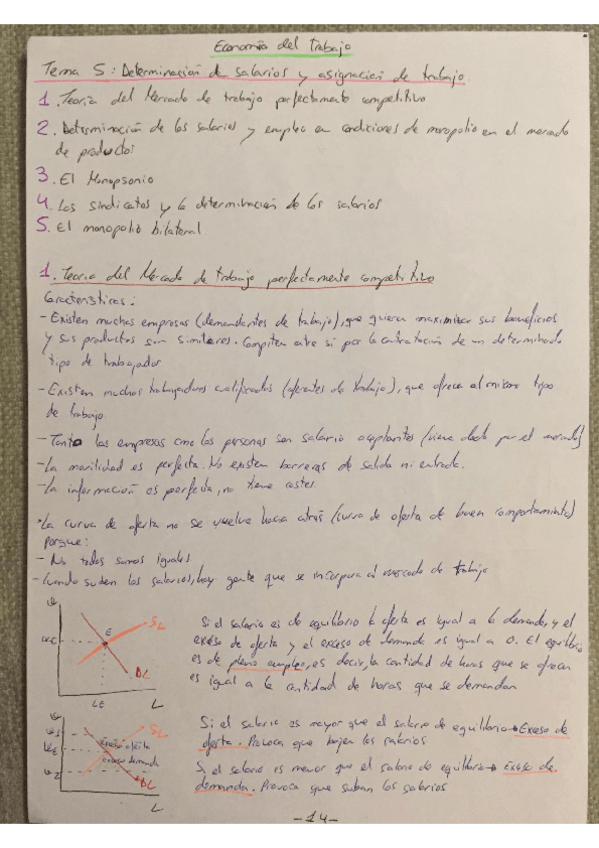 Economía del trabajo
Tema 5: Determinación de salarios y asignación de trabajo
1. Teoría del Mercado de trabajo perfectamente competitivo
2. Determinación de los salarios y empleo en condiciones de monopolio en el mercado
de productos
3. El Monopsonio
4. Los sindicatos y la determinación de los salarios
5. El monopolio bilateral
1. Teoría del Mercado de trabajo perfectamente competitivo
Características:
- Existen muchas empresas (demandantes de trabajo), que quieren maximizar sus beneficios
y sus productos son similares. Compiten entre sí por la contratación de un determinado
tipo de trabajador
- Existen muchos trabajadores cualificados (oferentes de trabajo), que ofrece el mismo tipo
de trabajo.
- Tanto las empresas como las personas son salario aceptantes (viene dado por el mercado)
- La movilidad es perfecta. No existen barreras de salida ni entrada.
- La información es perfecta, no tiene costes.
* La curva de oferta no se vuelve hacia atrás (curva de oferta de buen comportamiento)
porque:
- No todos somos iguales
- Cuando suben los salarios, hay gente que se incorpora al mercado de trabajo
SL
E
DL
LE
L
Si el salario es de equilibrio la oferta es igual a la demanda, y el
exceso de oferta y el exceso de demanda es igual a 0. El equilibrio
es de pleno empleo, es decir, la cantidad de horas que se ofrecen
es igual a la cantidad de horas que se demandan
SL
exceso oferta
exceso demanda
DL
L
Si el salario es mayor que el salario de equilibrio → Exceso de
oferta. Provoca que bajen los salarios
Si el salario es menor que el salario de equilibrio → Exceso de
demanda. Provoca que suban los salarios
-14-